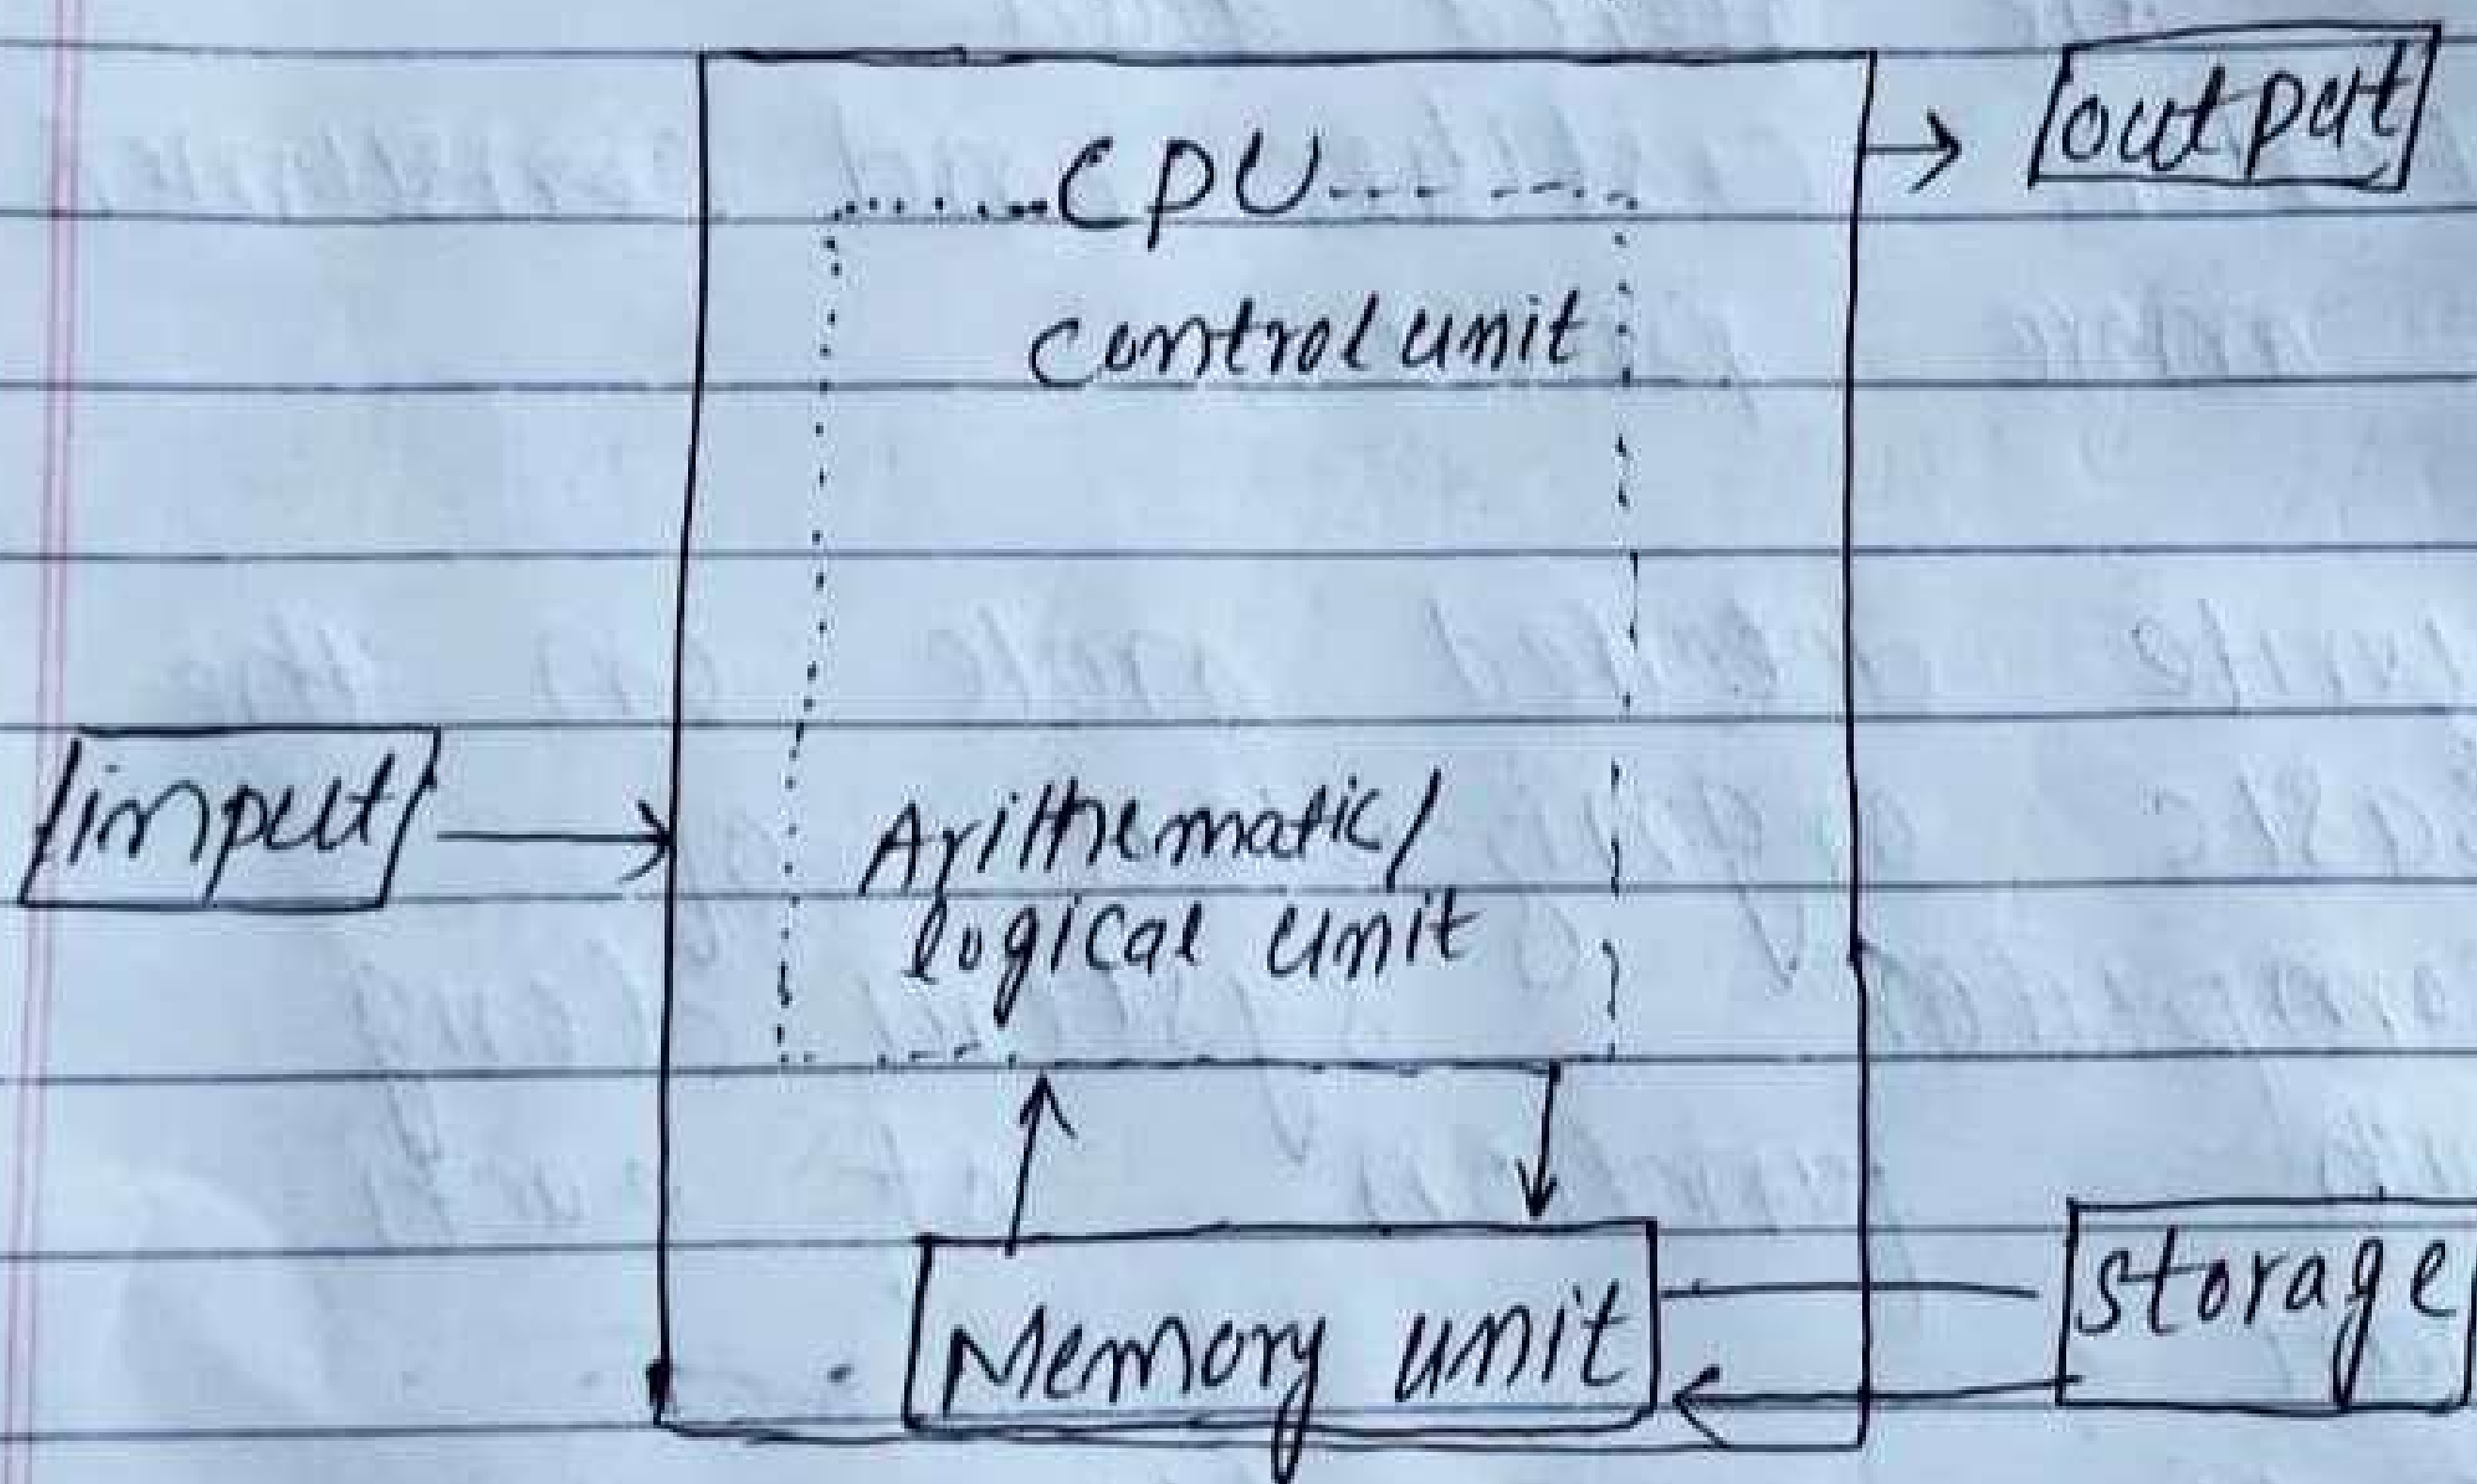 output
CPU
control unit
input
Arithematic/
logical unit
Memory unit
storage